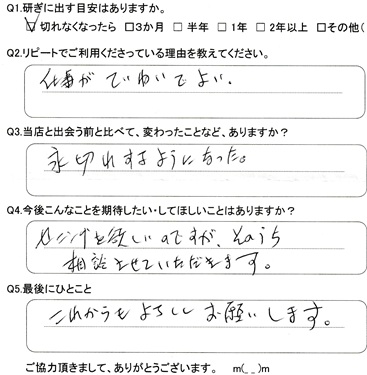 Q1.研ぎに出す目安はありますか。
☑切れなくなったら □3か月 □半年 □1年 □2年以上 □その他(
Q2.リピートでご利用くださっている理由を教えてください。
仕事がていねいでよい.
Q3.当店と出会う前と比べて、変わったことなど、ありますか?
永切れするようになった。
Q4.今後こんなことを期待したい・してほしいことはありますか?
セニングを欲しいのですが、そのうち
相談させていただきます。
Q5.最後にひとこと
これからもよろしくお願いします。
ご協力頂きまして、ありがとうございます。 m(_ _)m